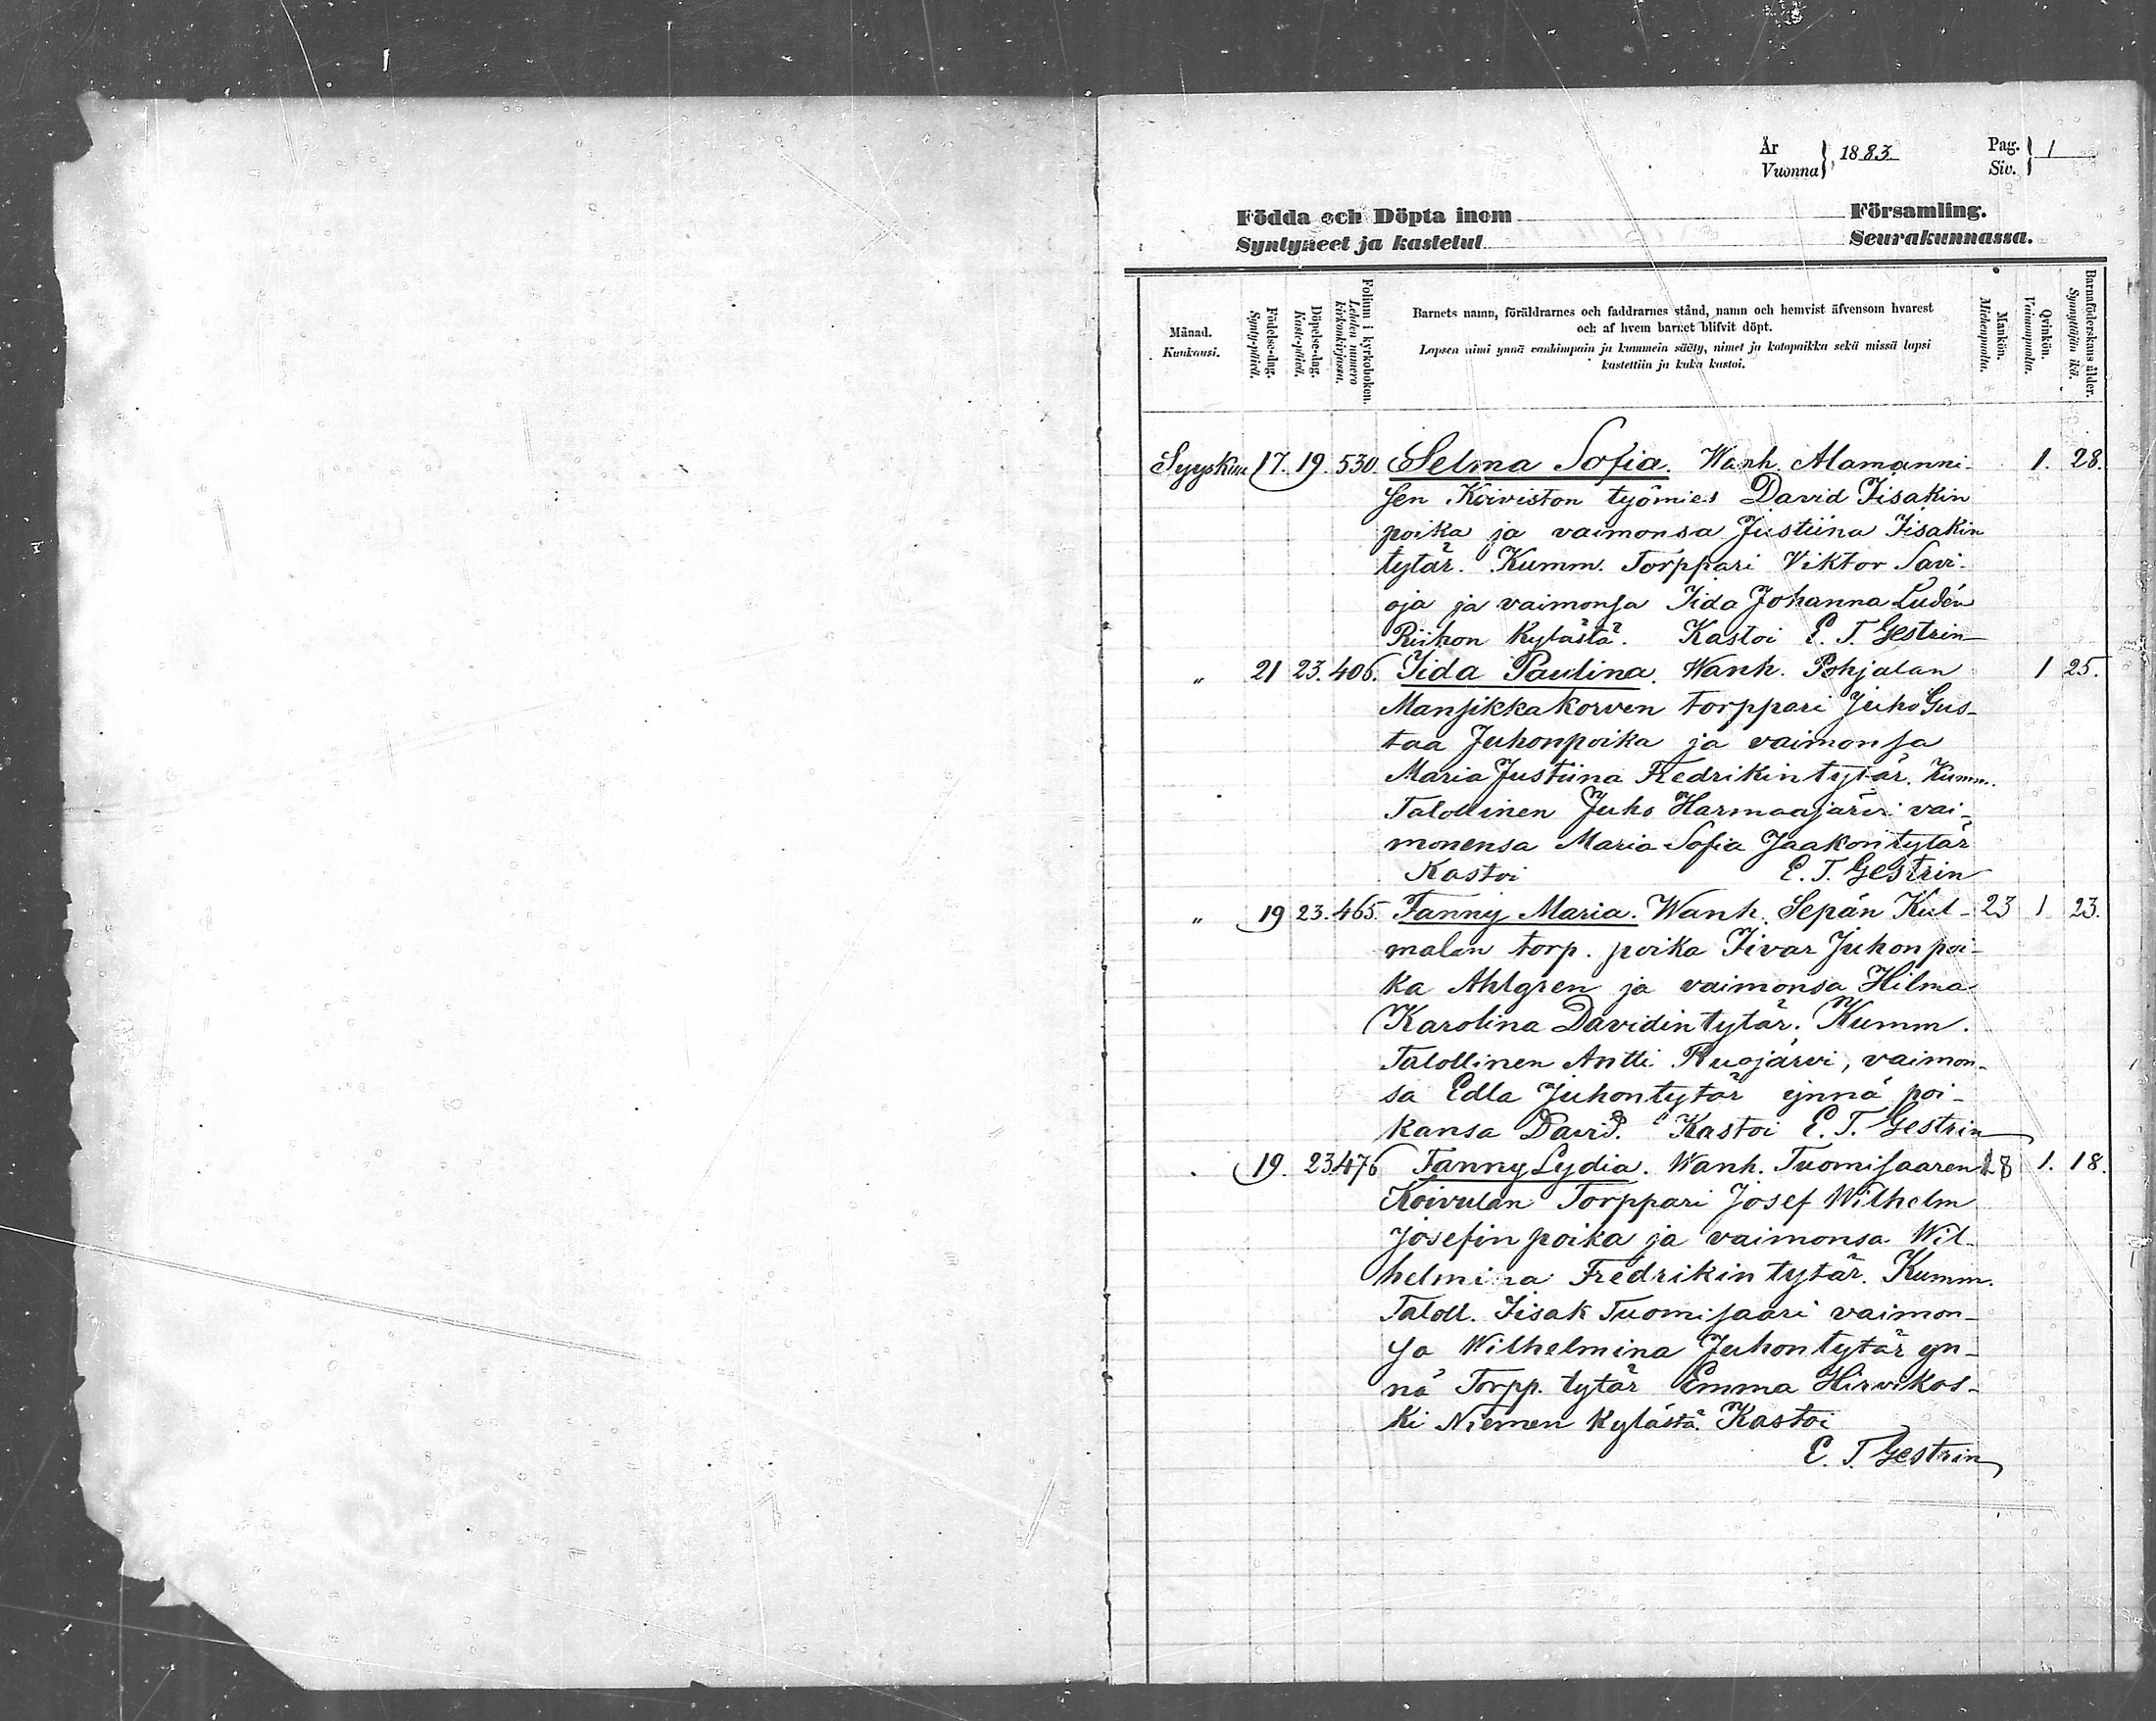 År Vuonna } 1883. Pag. Siv. } 1
Födda och Döpta inom Församling.
Syntyneet ja kastetut Seurakunnassa.
Månad. Kuukausi.
Födelse-dag. Synty-päivä.
Döpelse-dag. Kaste-päivä.
Folium i kyrkoboken. Lehden numero kirkonkirjassa.
Barnets namn, föräldrarnes och faddrarnes stånd, namn och hemvist äfvensom hvarest
och af hvem barnet blifvit döpt.
Lapsen nimi ynnä vanhimpain ja kummein sääty, nimet ja kotopaikka sekä missä lapsi
kastettiin ja kuka kastoi.
Mankön. Miehenpuolta.
Qvinkön. Vaimonpuolta.
Barnaföderskans ålder. Synnyttäjän ikä.
Syyskuu 17. 19. 530. Selma Sofia. Wanh. Alamanni- 1. 28.
sen Koiviston työmies David Iisakin
poika ja vaimonsa Justiina Iisakin
tytär. Kumm. Torppari Viktor Savi-
oja ja vaimonsa Iida Johanna Ludén
Riihon kylästä. Kastoi E. T. Gestrin
" 21 23. 406. Iida Paulina. Wanh. Pohjalan 1 25.
Mansikkakorven torppari Juho Gus-
taa Juhonpoika ja vaimonsa
Maria Justiina Fredrikintytär. Kumm.
Talollinen Juho Harmaajärvi vai-
monensa Maria Sofia Jaakontytär
Kastoi E. T. Gestrin
" 19 23. 465. Fanny Maria. Wanh. Sepän Kul- 23 1 23.
malan torp. poika Iivar Juhonpoi-
ka Ahlgren ja vaimonsa Hilma
Karolina Davidintytär. Kumm.
Talollinen Antti Ruojärvi, vaimon-
sa Edla Juhontytär ynnä poi-
kansa David. Kastoi E. T. Gestrin
. 19. 23 476 Fanny Lydia. Wanh. Tuomisaaren 18 1. 18.
Koivulan Torppari Josef Wilhelm
Josefinpoika ja vaimonsa Wil-
helmina Fredrikintytär. Kumm.
Taloll. Iisak Tuomisaari vaimon-
sa Wilhelmina Juhontytär yn-
nä Torpp. tytär Emma Hirvikos-
ki Niemen kylästä. Kastoi
E. T. Gestrin